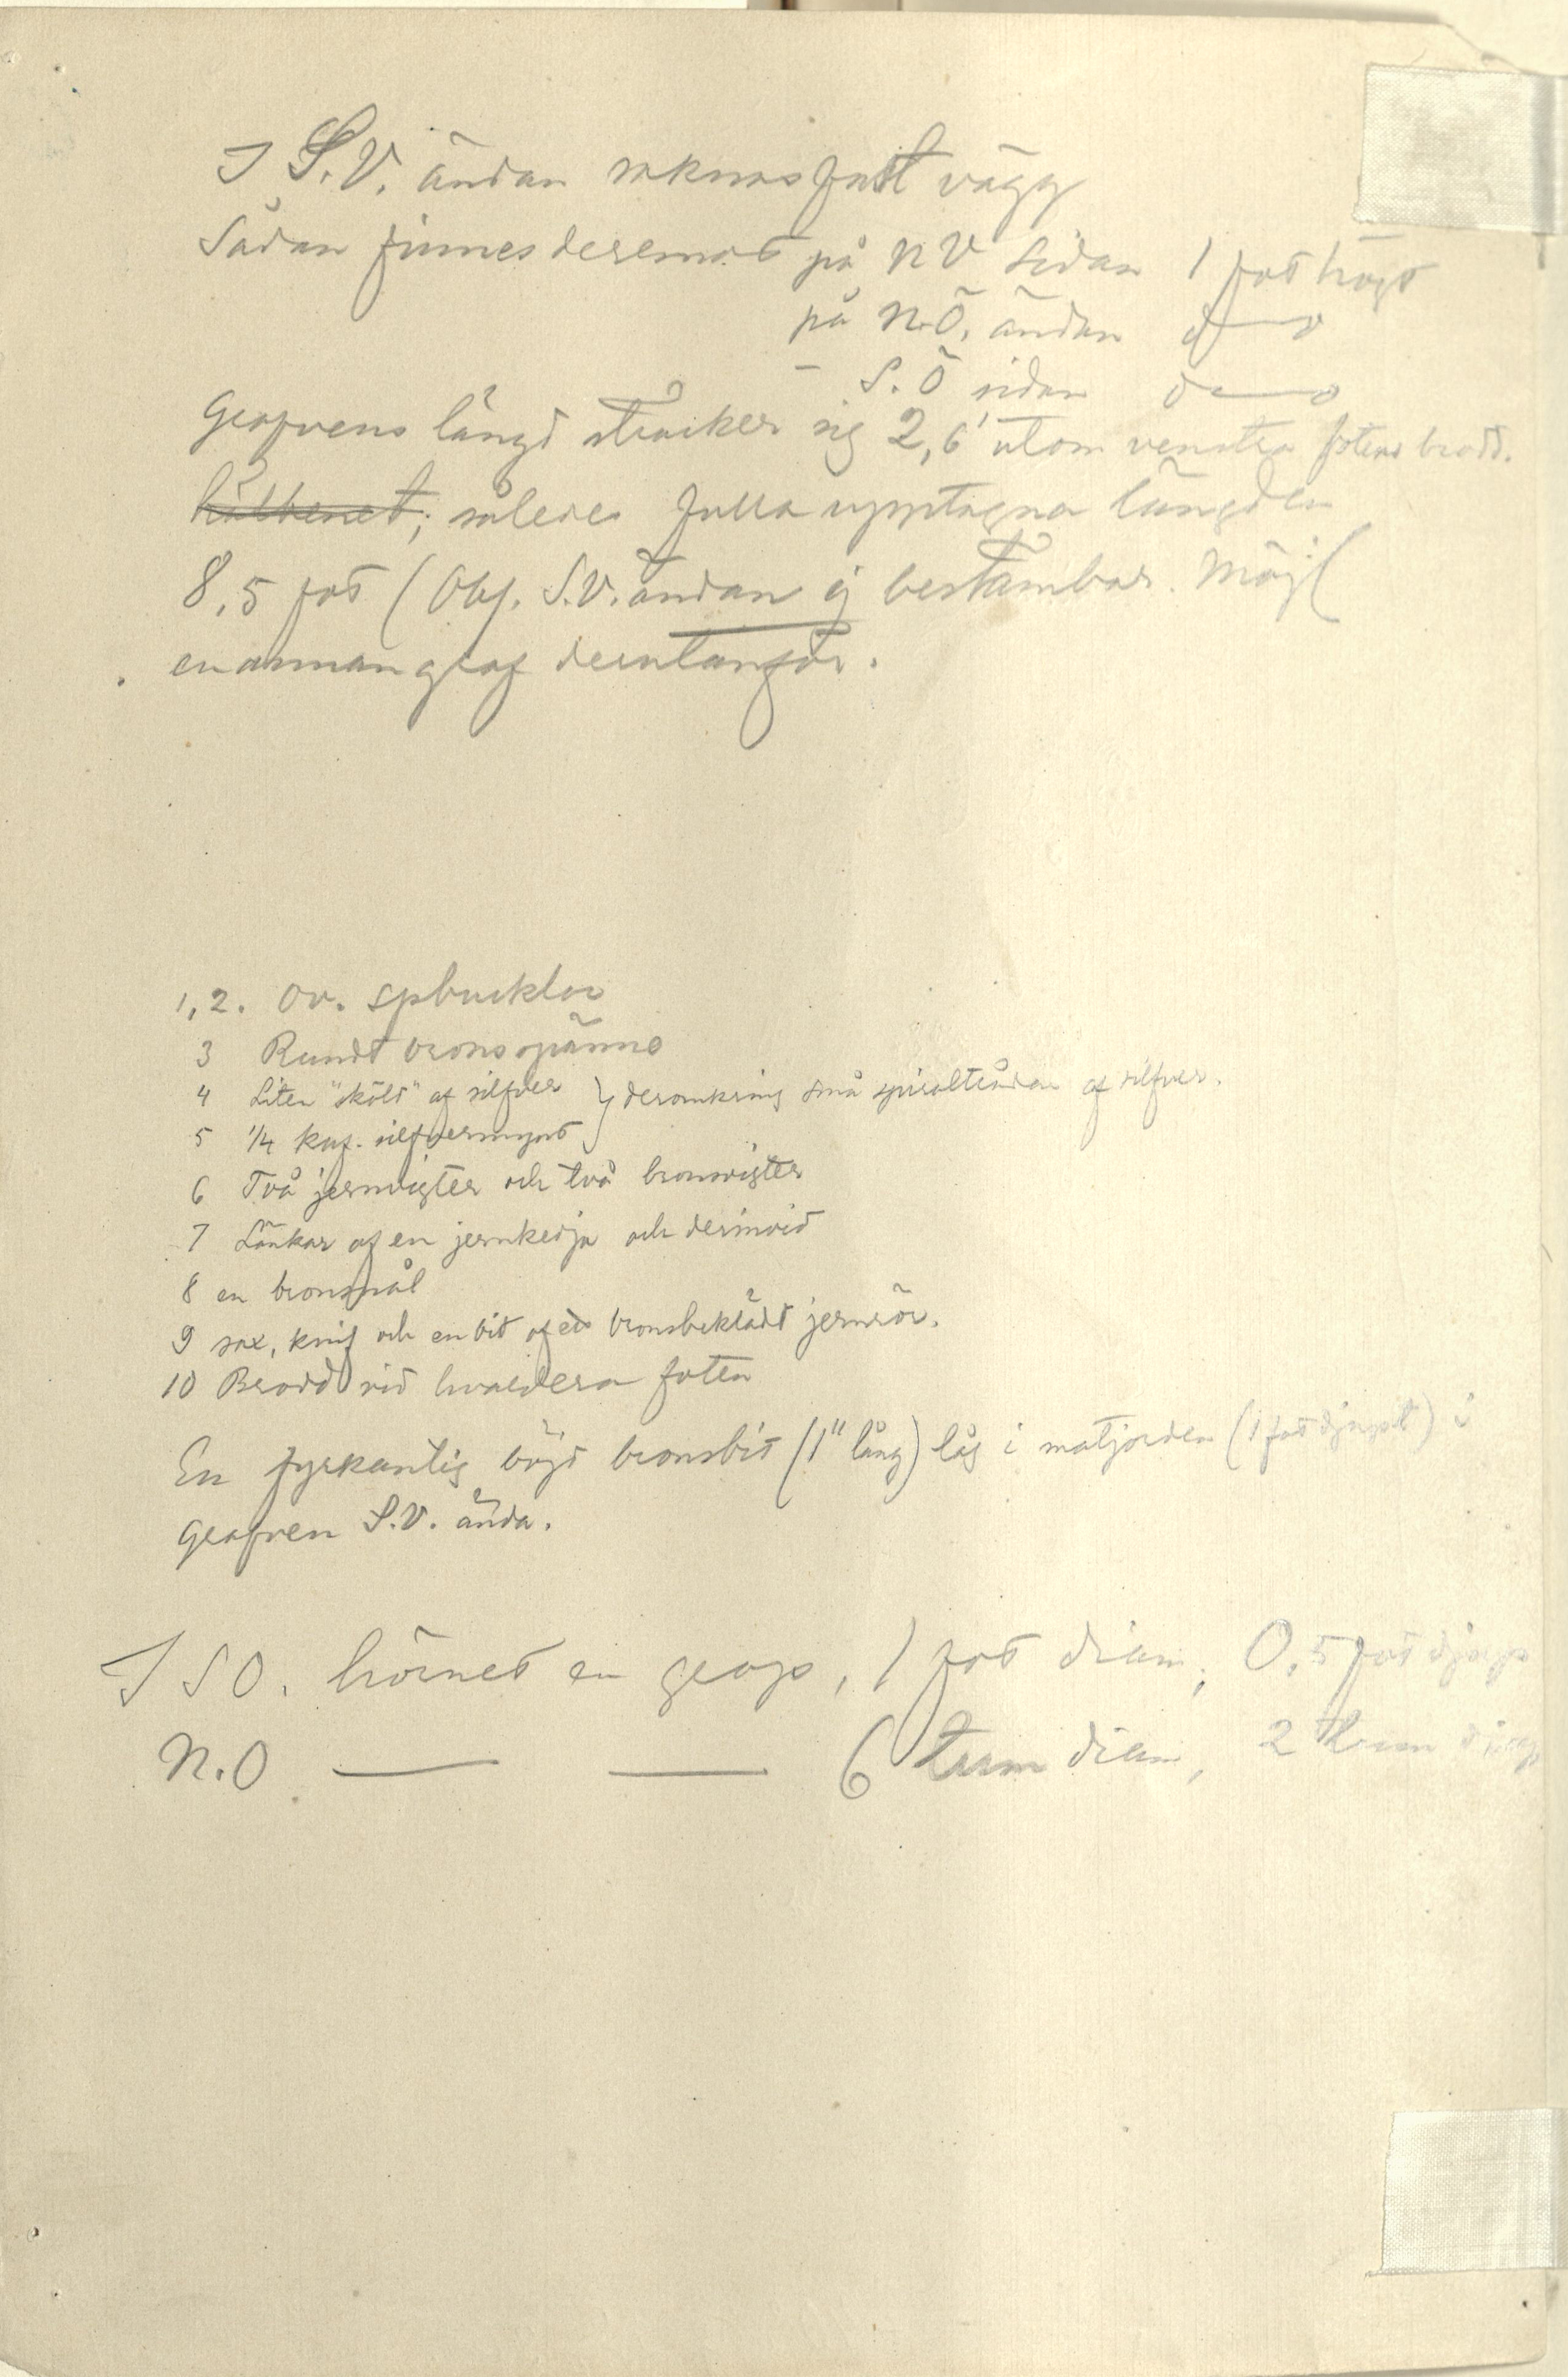 I S.V. ändan saknas fast vägg
Sådan finnes deremot på NV sidan 1 fot högt
på N.Ö. ändan d——o
– S.Ö sidan d——o
Grafvens längd sträcker sig 2,6' utom venstra fotens brodd.
hälbenet; således fulla upptagna längden
8,5 fot (Obs. S.V. ändan ej bestämbar. Möjl
en annan graf derutanför.
1,2. Ov. spbucklor
3 Rundt bronsspänne
4 Liten "sköld" af silfver } deromkring små spiraltrådar af silfver.
5 1/4 kuf. silfvermynt
6 Två jernvigter och två bronsvigter
7 Länkar af en jernkedja och derinvid
8 en bronsnål
9 sax, knif och en bit af ett bronsbeklädt jernrör.
10 Brodd vid hvardera foten
En fyrkantig böjd bronsbit (1" lång) låg i matjorden (1 fot djupt) i
grafven S.V. ända.
I SO. hörnet en grop, 1 fot diam, 0,5 fot djup
N.O —— —— 6 tum diam, 2 tum djup